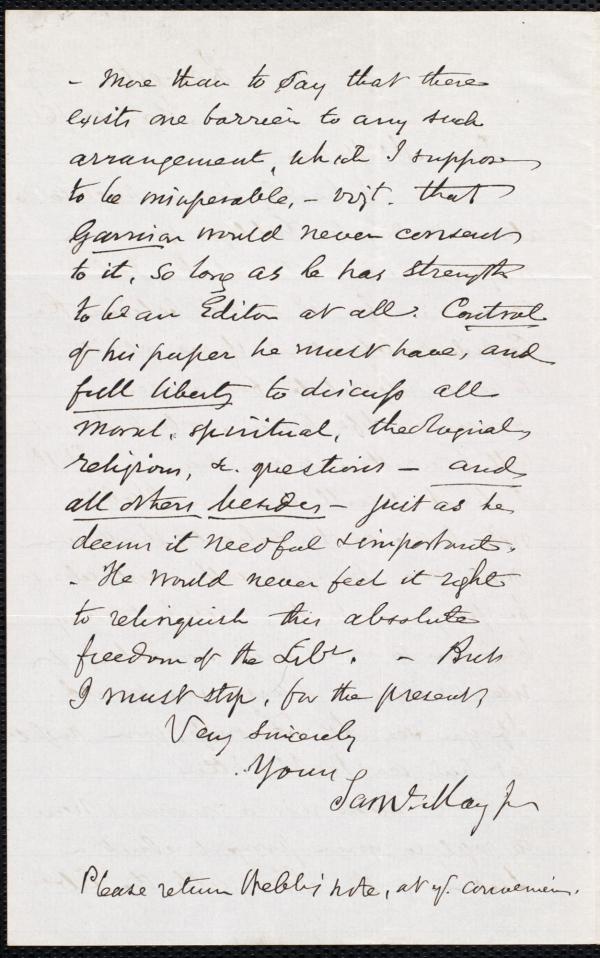 - More than to say that there
exists one barrier to any such
arrangement, which I suppose
to be insuperable, - vizt. that
Garrison would never consent
to it, so long as he has strength
to be an Editor at all. Control
of his paper he must have, and
full liberty to discuss all
moral, spiritual, theological,
religious, &c. questions - and
all others besides - just as he
deems it needful & important.
- He would never feel it right
to relinquish this absolute
freedom of the Libr. - But
I must stop, for the present,
Very sincerely
Yours
Saml. May Jr
Please return Webb's note, at yr. convenience.